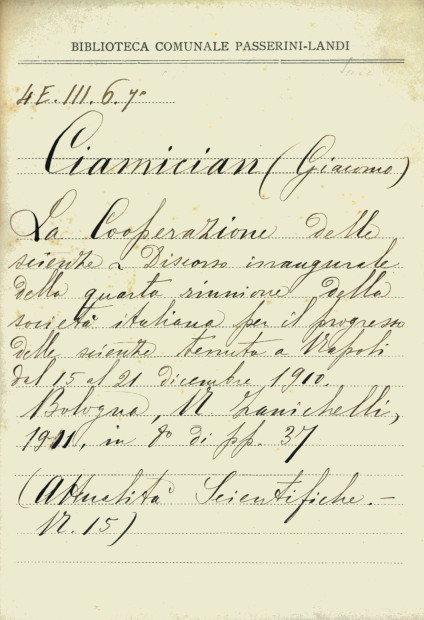 BIBLIOTECA COMUNALE PASSERINI-LANDI
4 E. III. 6. 7°
Ciamician (Giacomo)
La Cooperazione delle
scienze ~ Discorso inaugurale
della quarta riunione della
società italiana per il progresso
delle scienze tenuta a Napoli
dal 15 al 21 dicembre 1910.
Bologna, N. Zanichelli,
1911, in 8° di pp. 37
(Attualità Scientifiche. –
N. 15)